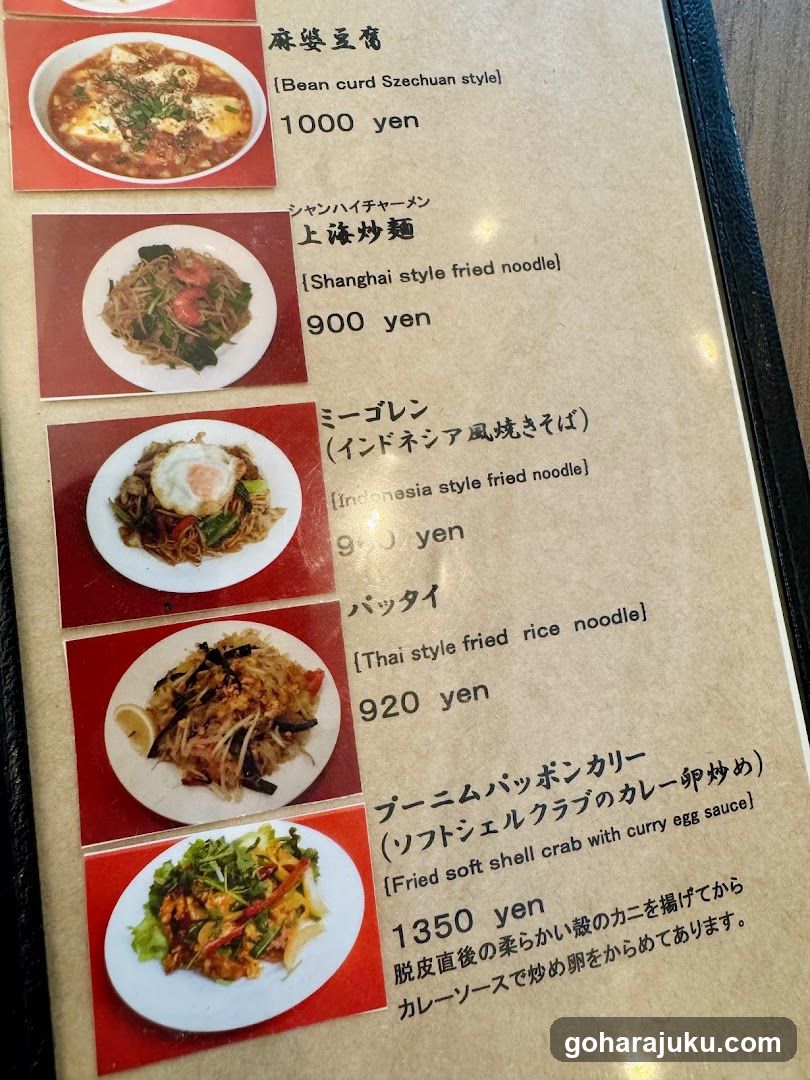 麻婆豆腐
[Bean curd Szechuan style]
1000 yen
シャンハイチャーメン
上海炒麺
[Shanghai style fried noodle]
900 yen
ミーゴレン
(インドネシア風焼きそば)
[Indonesia style fried noodle]
yen
パッタイ
[Thai style fried rice noodle]
920 yen
プーニムパッポンカリー
(ソフトシェルクラブのカレー卵炒め)
[Fried soft shell crab with curry egg sauce]
1350 yen
脱皮直後の柔らかい殻のカニを揚げてから
カレーソースで炒め卵をからめてあります。
goharajuku.com